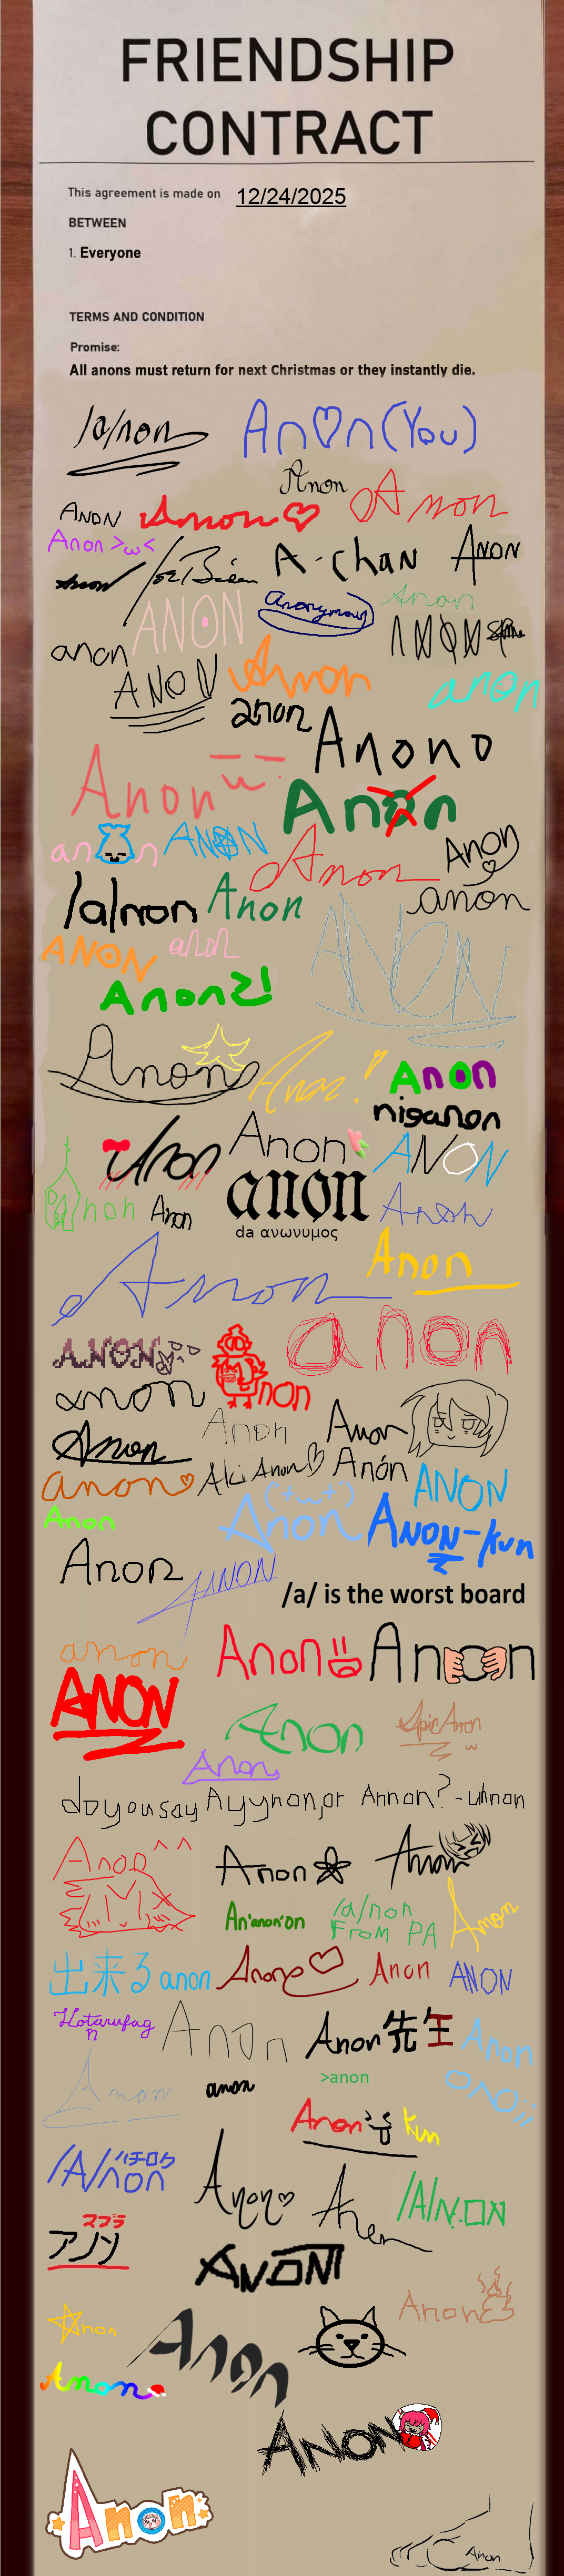 FRIENDSHIP
CONTRACT
This agreement is made on 12/24/2025
BETWEEN
1. Everyone
TERMS AND CONDITION
Promise:
All anons must return for next Christmas or they instantly die.
/a/non
An♡n(You)
Anon
ANON
Anon♡
Anon
Anon >ω<
Anon
Joe Biden
A-chan
ANON
ANON
Anonymous
Anon
anon
ANON
Anon
anon
anon
Anono
Anon
Anon
an n
ANON
Anon
Anon
/a/non
Anon
anon
ANON
anon
ANON
Anon2!
Anon
Anon!
Anon
niganon
Anon
Anon
ANON
Anon
Anon
anon
Anon
da ανωνυμος
Anon
Anon
anon
ANON
non
anon
Anon
Anon
Anon
anon♡
Aki Anon♡
Anón
ANON
Anon
Anon
('+ω+')
ANON-kun
Anon
ANON
/a/ is the worst board
anon
Anon
Anon
ANON
Anon
EpicAnon
Anon
do you say Ayynon, or Annon? - Uhnon
Anon^^
Anon
Anon
An'anon'on
/a/non
From PA
Anon
出来る anon
Anon
Anon
ANON
Hotarufag
n
Anon
Anon先生
Anon
Anon
anon
>anon
Anon
kun
/A/non
ハチロク
Anon♡
Anon
/A/NON
スプラ
アノン
ANON
Anon
Anon
Anon
Anon
ANON
Anon
Anon